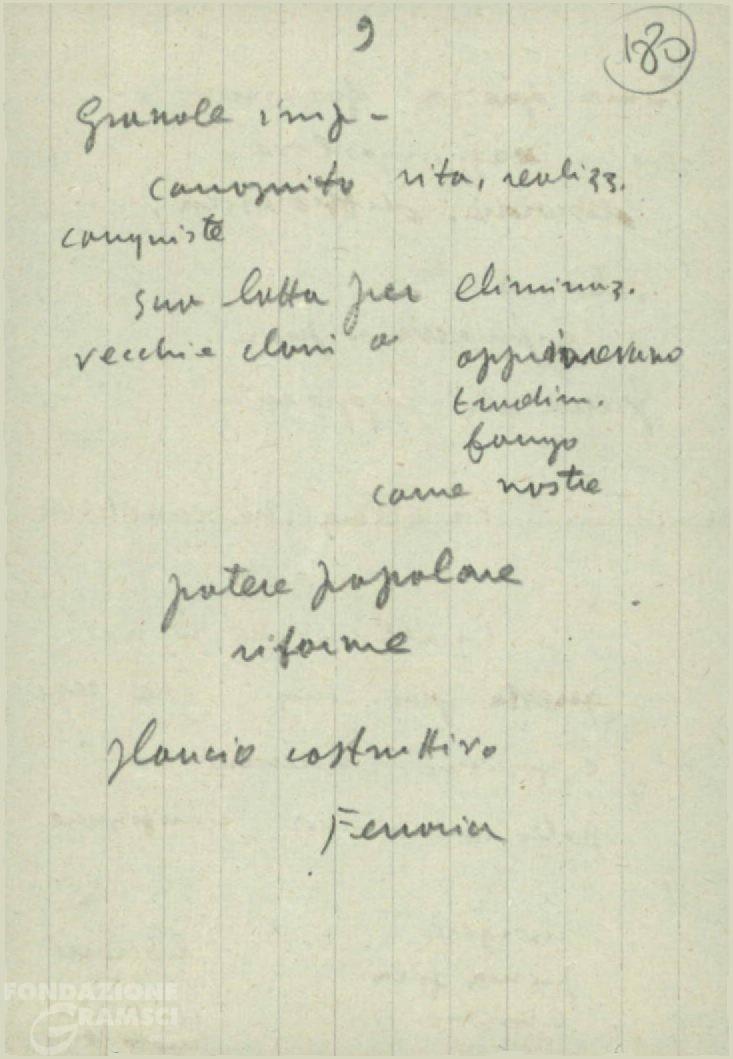 9
180
Grande imp-
conosciuto vita, realizz.
conquiste
sua lotta per eliminaz.
vecchie classi a opprimevano
tradim.
fango
come nostre
potere popolare
riforme
slancio costruttivo
Ferrovia
FONDAZIONE
GRAMSCI